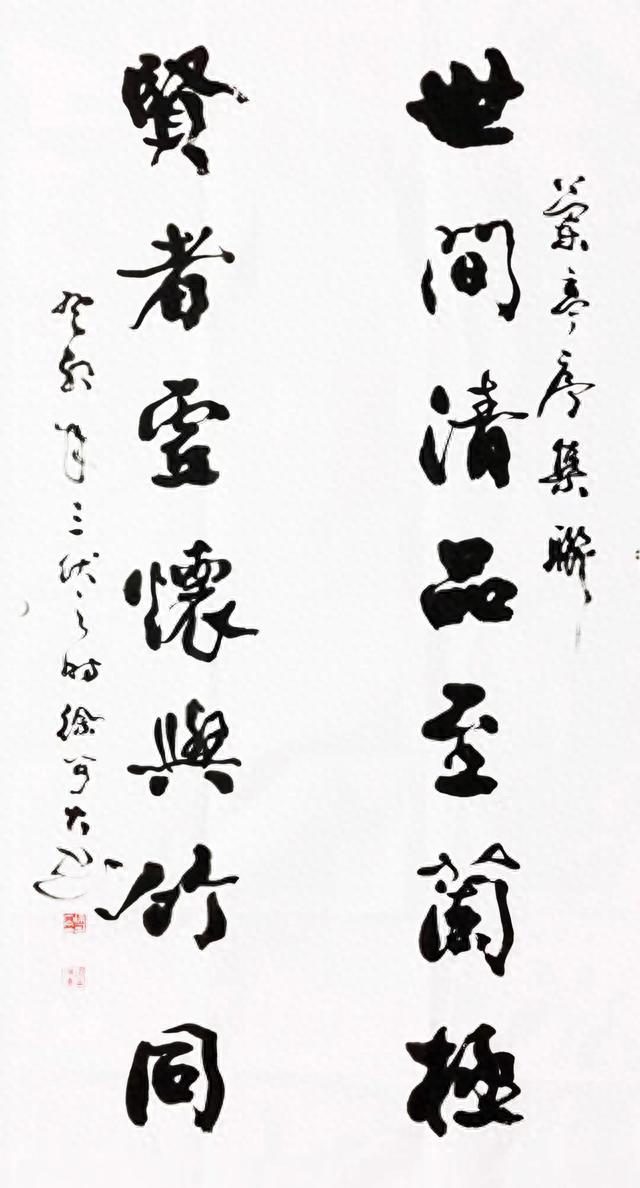 蘭亭序集聯
世間清品至蘭極
賢者虛懷與竹同
癸卯年三伏之時徐可大書